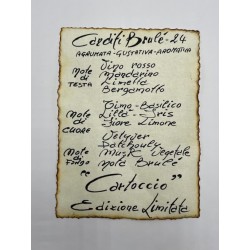 Canditi Brulé-24
AGRUMATA-GUSTATIVA-AROMATICA
Note di TESTA
Vino rosso
Mandarino
Limetta
Bergamotto
Note di CUORE
Timo-Basilico
Lillà-Iris
Fiore Limone
Note di FONDO
Vetiver
Patchouly
Musk Vegetale
Note Brulé
"Cartoccio"
Edizione Limitata